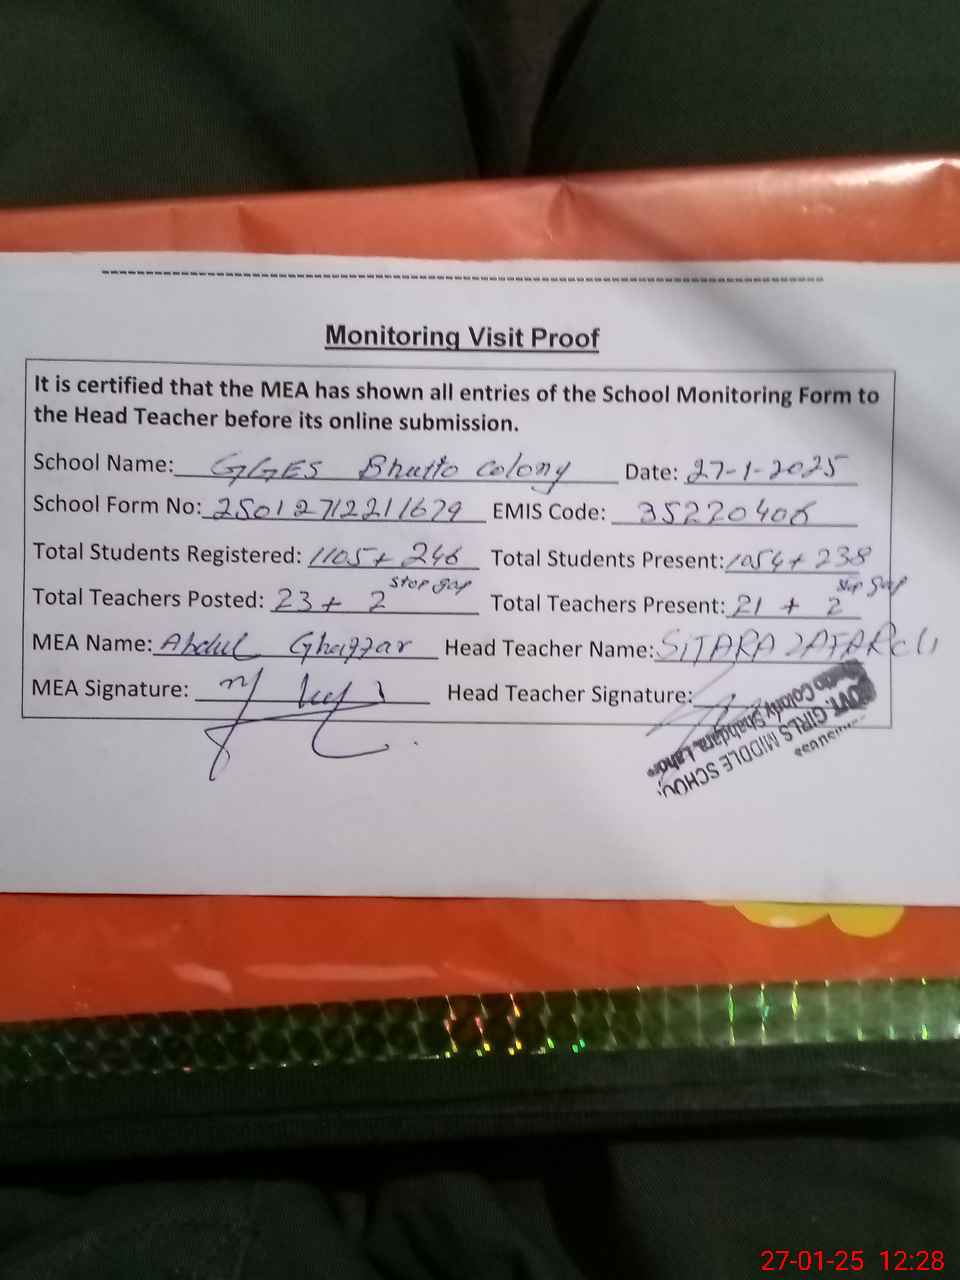 Monitoring Visit Proof
It is certified that the MEA has shown all entries of the School Monitoring Form to
the Head Teacher before its online submission.
School Name: GGES Bhutto Colony Date: 27-1-2025
School Form No: EMIS Code: 35220406
Total Students Registered: 1105 + 246 Total Students Present: 1054 + 238
Total Teachers Posted: 23 + 2 stop gap Total Teachers Present: 21 + 2 stop gap
MEA Name: Abdul Ghaffar Head Teacher Name: SITARA ZAFAR
MEA Signature: Head Teacher Signature:
GOVT. GIRLS MIDDLE SCHOOL
Colony Shahdara, Lahore
27-01-25 12:28